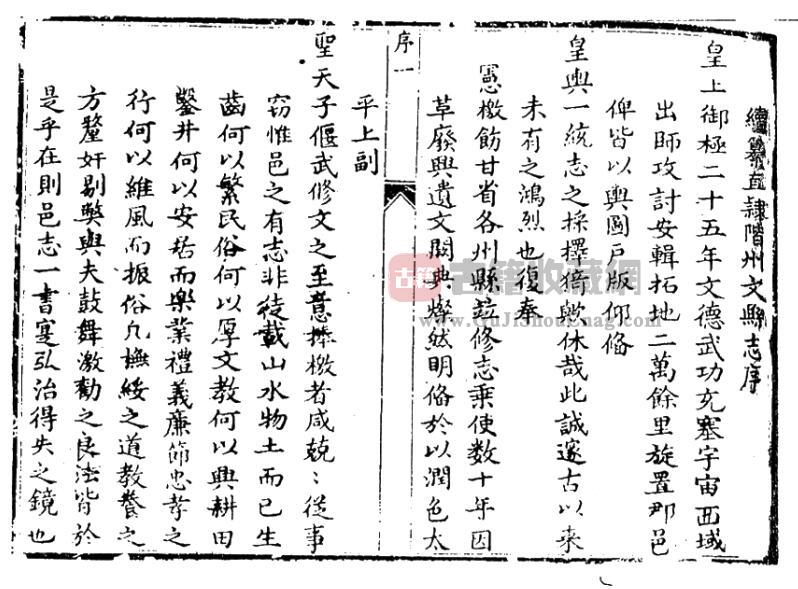 續纂直隸階州文縣志序
皇上御極二十五年文德武功充塞宇宙西域
出師攻討安輯拓地二萬餘里旋置郡邑
俾皆以輿圖戶版仰偹
皇輿一統志之採擇猗歟休哉此誠邃古以来
未有之鴻烈也復奉
憲檄飭甘省各州縣並修志乗使数十年因
草廢興遺文闕典燦然明偹於以潤色太
序一
平上副
聖天子偃武修文之至意捧檄者咸兢〻從事
窃惟邑之有志非徒載山水物土而已生
齒何以繁民俗何以厚文教何以興耕田
鑿井何以安居而樂業禮義廉節忠孝之
行何以維風而振俗凡撫綏之道教養之
方釐奸剔獘與夫鼓舞激勸之良法皆於
是乎在則邑志一書寔弘治得失之鏡也
古籍 古籍收藏網
www.GuJiShouCang.com